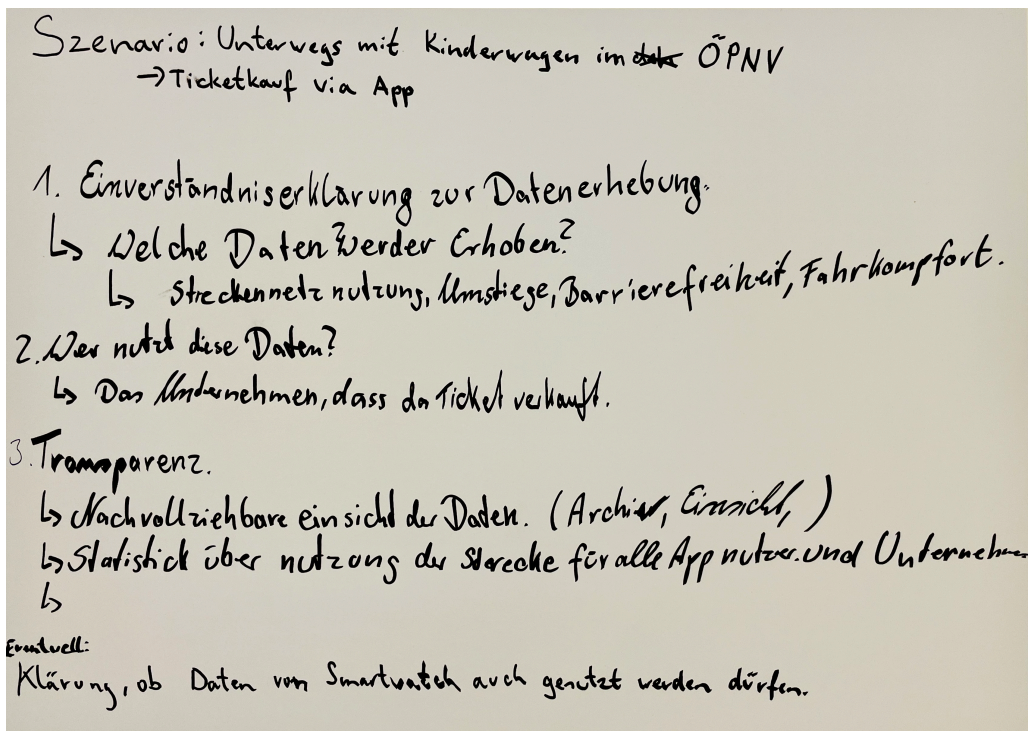 Szenario: Unterwegs mit Kinderwagen im ÖPNV
→ Ticketkauf via App
1. Einverständniserklärung zur Datenerhebung.
↳ Welche Daten? Werder Erhoben?
↳ Streckennetz nutzung, Umstiege, Barrierefreiheit, Fahrkompfort.
2. Wer nutzt diese Daten?
↳ Das Unternehmen, dass da Ticket verkauft.
3. Transparenz.
↳ Nachvollziehbare einsicht der Daten. (Archiv, Einsicht, )
↳ Statistick über nutzung der Strecke für alle App nutzer. und Unternehmen
↳
Eventuell:
Klärung, ob Daten von Smartwatch auch genutzt werden dürfen.